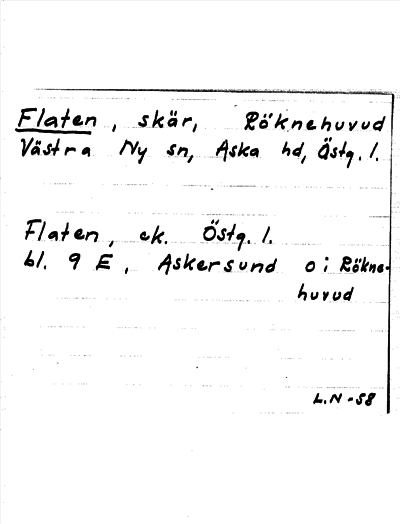 Flaten, skär, Röknehuvud
Västra Ny sn, Aska hd, Östg. l.
Flaten, ek. Östg. l.
bl. 9 E, Askersund o i Rökne-
huvud
L.N -58